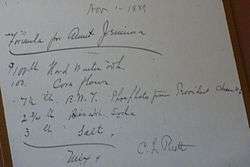 Nov 1 - 1889
Formula for Aunt Jemima
100 lb Hard Winter Wh
100. Corn flour
7½ lb. B.W.T. Phosphates from Provident Chem
2¾ lb Bicarb. Soda
3 lb Salt.
Mix.
C. L. Rutt